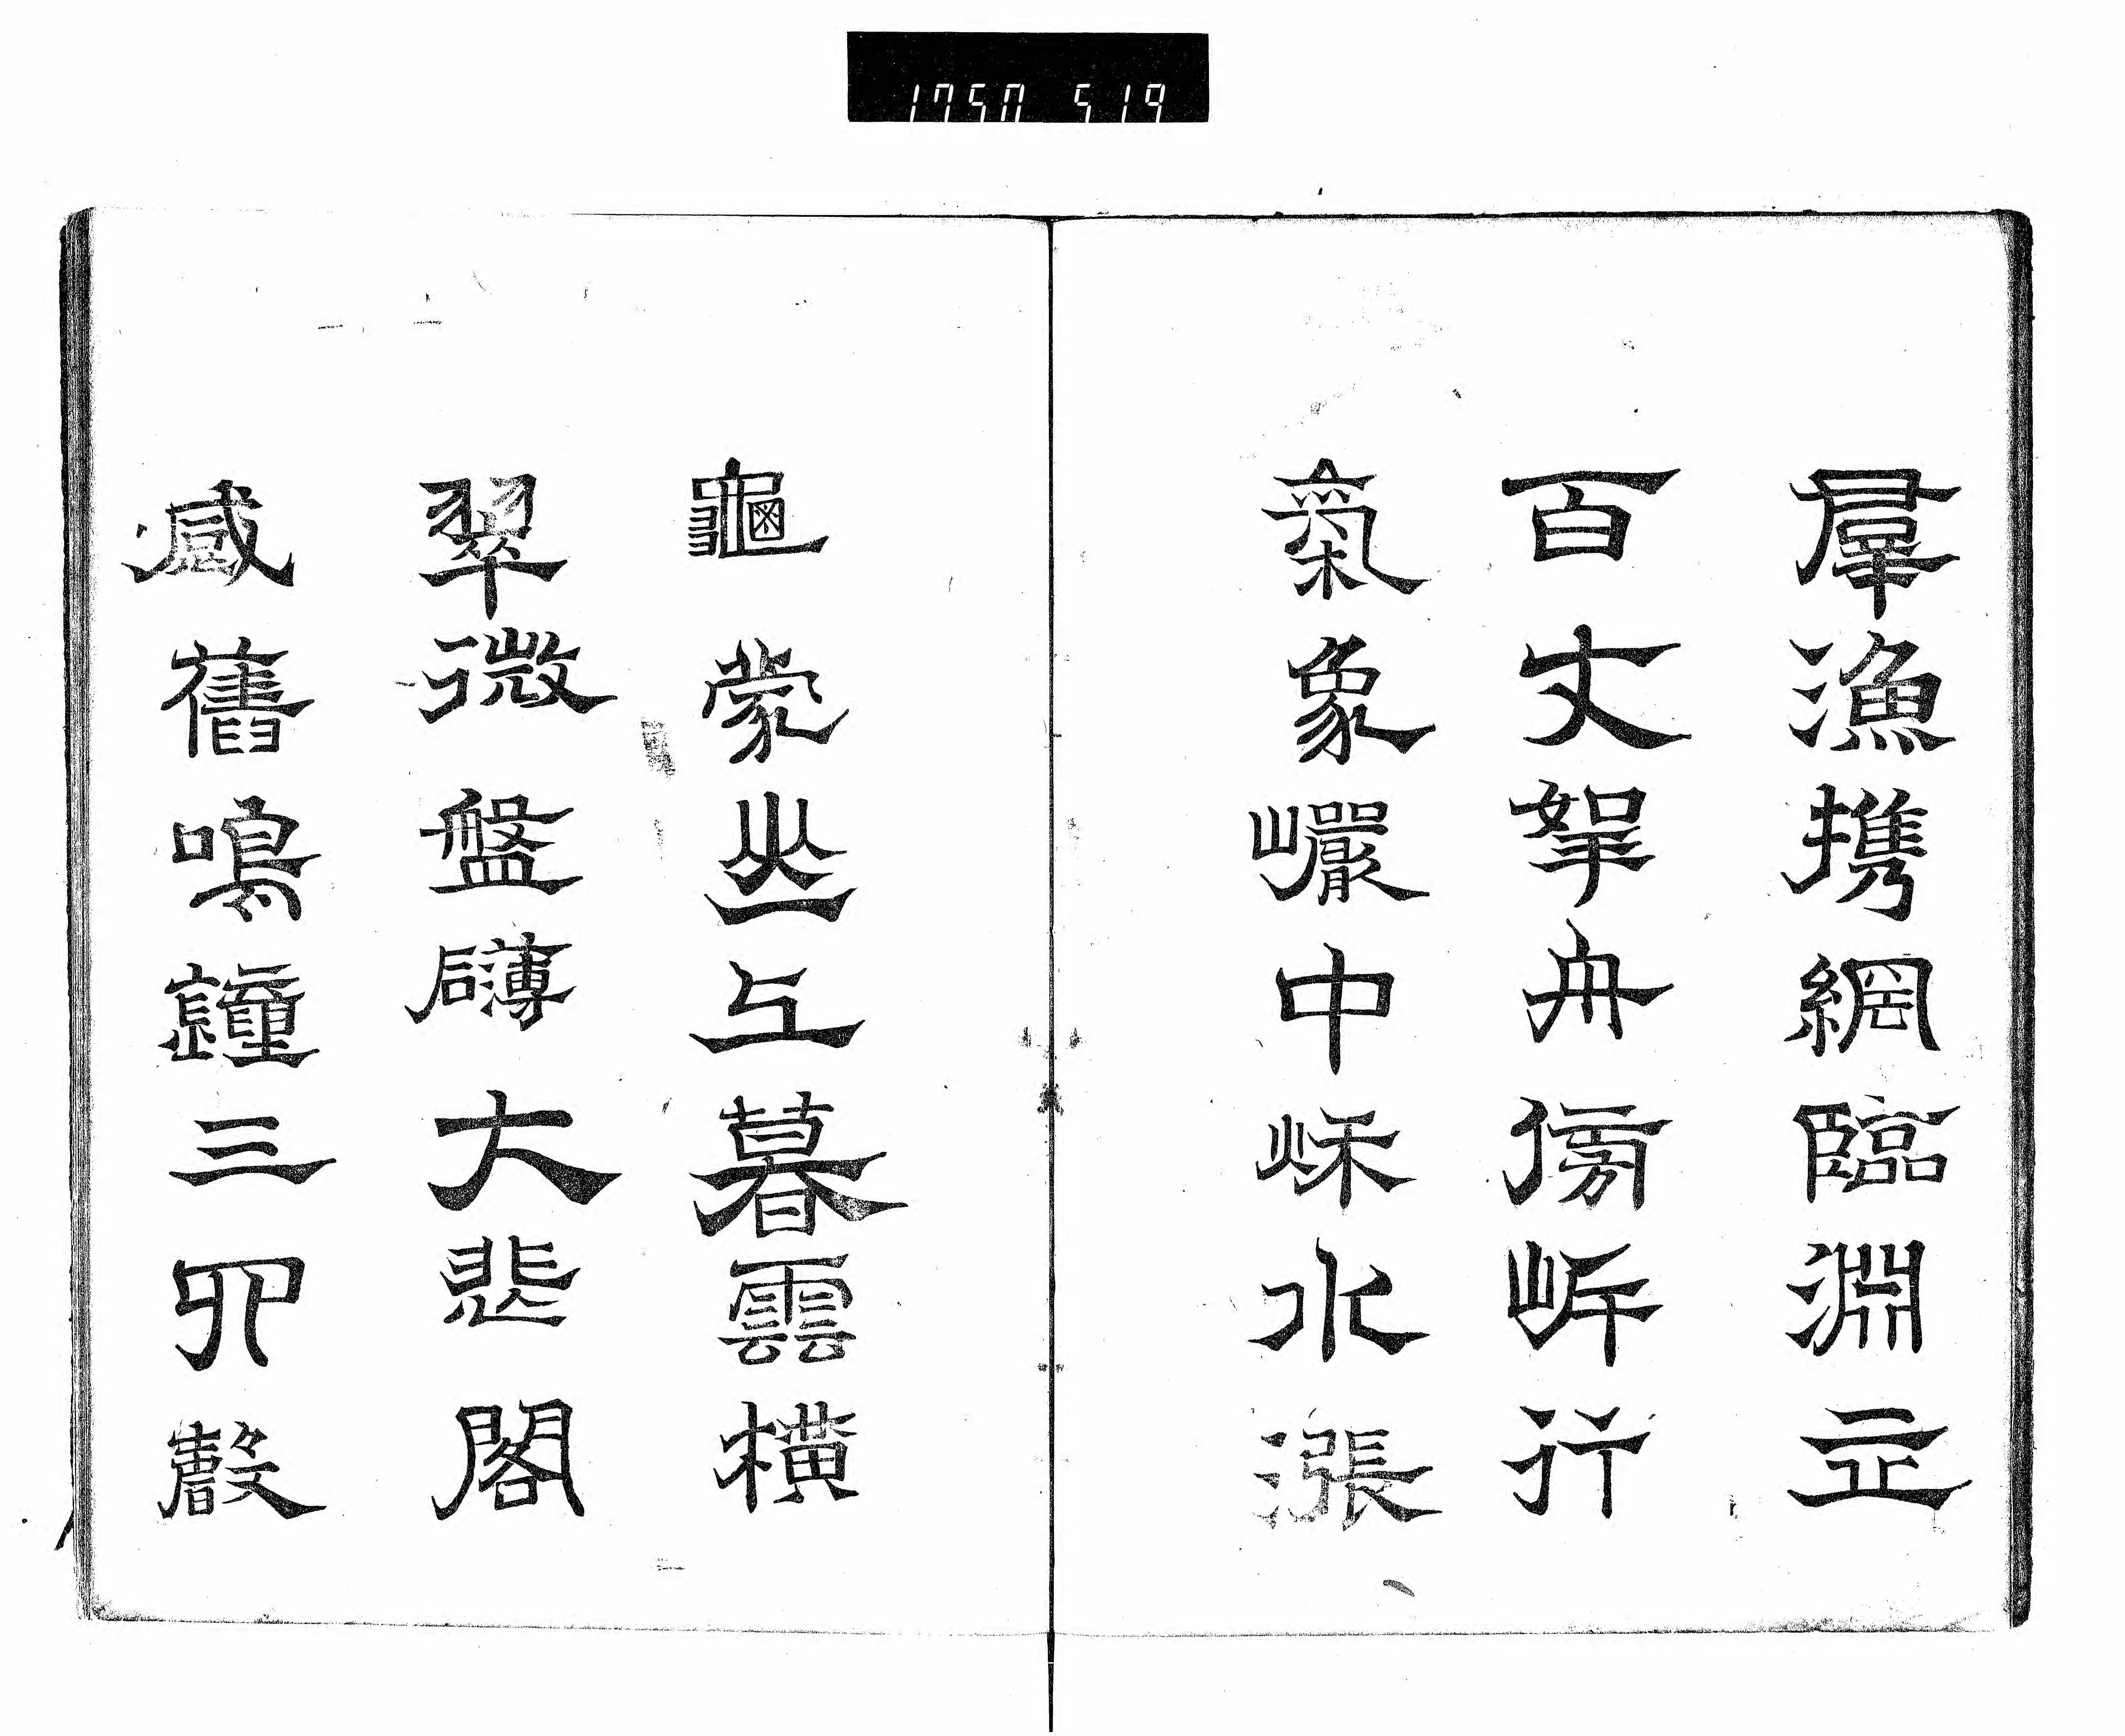 1750 519
羣漁携網臨淵立
百丈挐舟傍岸行
氣象巖中秋水漲
龜蒙丘上暮雲橫
翠微盤礴大悲閣
感舊鳴鐘三四聲